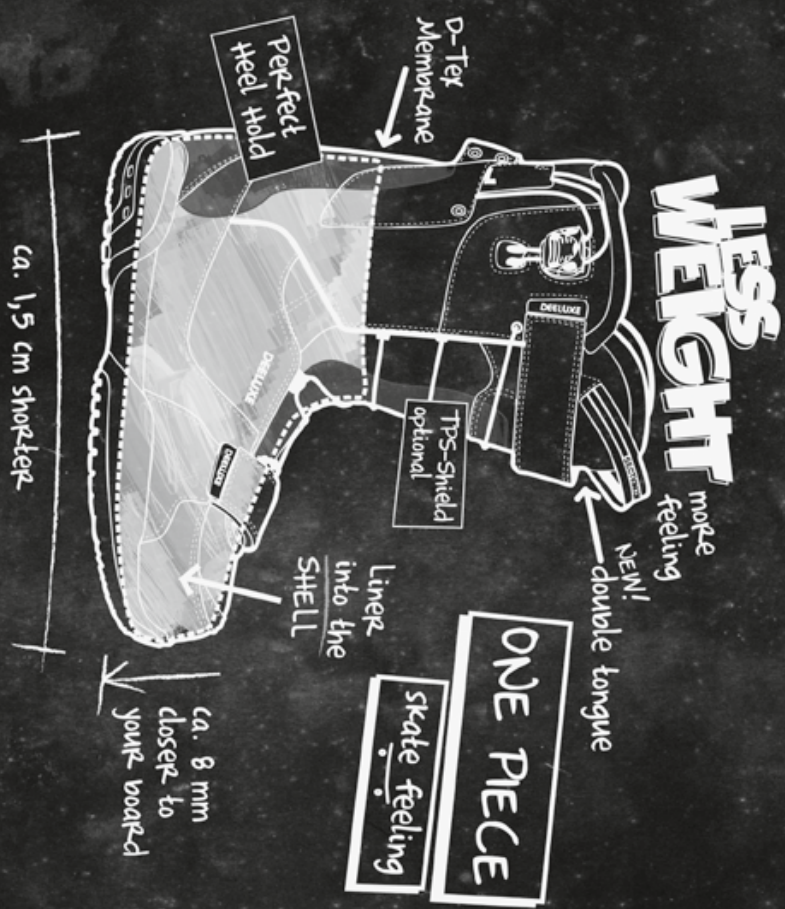 LESS
WEIGHT
more
feeling
NEW!
double tongue
ONE PIECE
skate feeling
D-Tex
Membrane
Perfect
Heel Hold
DEELUXE
TPS-Shield
optional
DEELUXE
DEELUXE
Liner
into the
SHELL
ca. 8 mm
closer to
your board
ca. 1,5 cm shorter